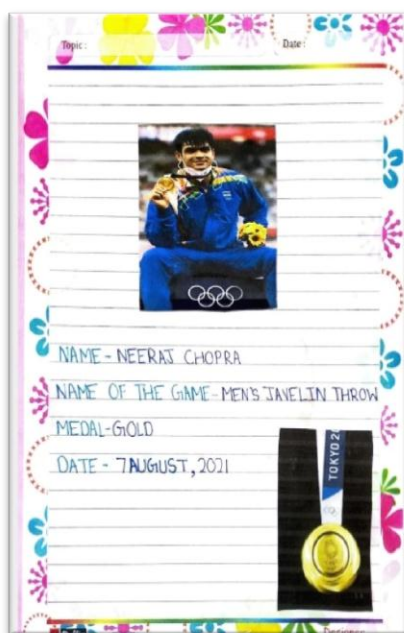 Topic :
Date :
NAME - NEERAJ CHOPRA
NAME OF THE GAME - MEN'S JAVELIN THROW
MEDAL - GOLD
DATE - 7 AUGUST, 2021
TOKYO 20